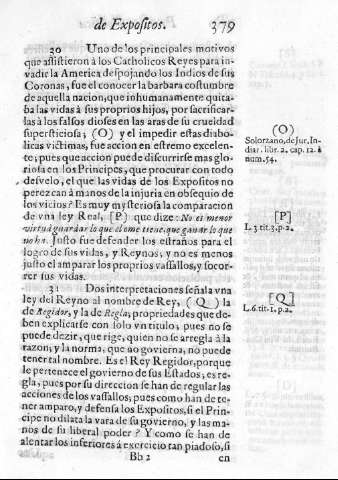 de Expositos. 379
20 Uno de los principales motivos
que assistieron à los Catholicos Reyes para in-
vadir la America despojando los Indios de sus
Coronas, fue el conocer la barbara costumbre
de aquella nacion, que inhumanamente quita-
ba las vidas à sus proprios hijos, por sacrificar-
las à los falsos dioses en las aras de su crueldad
supersticiosa; (O) y el impedir estas diabo-
licas victimas, fue accion en estremo excelen-
te; pues que accion puede discurrirse mas glo-
riosa en los Principes, que procurar con todo
desvelo, el que las vidas de los Expositos no
perezcan à manos de la injuria en obsequio de
los vicios? Es muy mysteriosa la comparacion
de vna ley Real, [P] que dize: No es menor
virtud guardar lo que el ome tiene, que ganar lo que
no ha. Justo fue defender los estraños para el
logro de sus vidas, y Reynos; y no es menos
justo el amparar los proprios vassallos, y socor-
rer sus vidas.
31 Dos interpretaciones señala vna
ley del Reyno al nombre de Rey, (Q) la
de Regidor, y la de Regla; propriedades que de-
ben explicarse con solo vn titulo; pues no se
puede dezir, que rige, quien no se arregla à la
razon; y la norma, que no govierna, no puede
tener tal nombre. Es el Rey Regidor, porque
le pertenece el govierno de sus Estados; es re-
gla, pues por su direccion se han de regular las
acciones de los vassallos; pues como han de te-
ner amparo, y defensa los Expositos, si el Prin-
cipe no dilata la vara de su govierno, y las ma-
nos de su liberal poder? Y como se han de
alentar los inferiores à exercicio tan piadoso, si
Bb 2 en
(O)
Solorzano, de Jur. In-
diar. libr. 2. cap. 12. à
num. 54.
[P]
L. 3 tit. 3. p. 2.
[Q]
L. 6. tit. 1. p. 2.